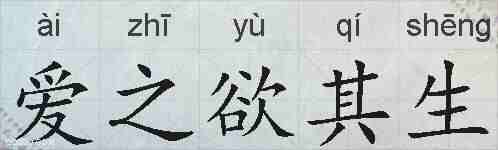 ài zhī yù qí shēng
爱之欲其生